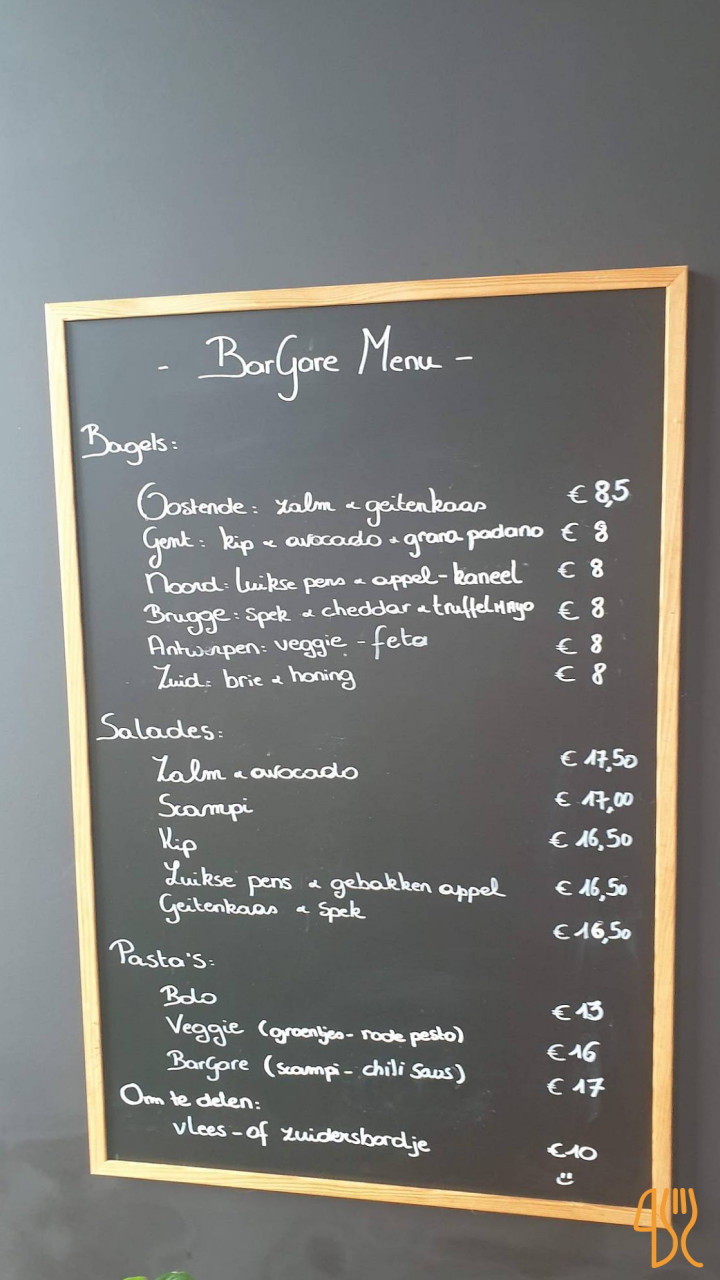 - BarGare Menu -
Bagels:
Oostende: zalm & geitenkaas € 8,5
Gent: kip & avocado & grana padano € 8
Noord: luikse pens & appel-kaneel € 8
Brugge: spek & cheddar & truffelMAyo € 8
Antwerpen: veggie - feta € 8
Zuid: brie & honing € 8
Salades:
Zalm & avocado € 17,50
Scampi € 17,00
Kip € 16,50
Luikse pens & gebakken appel € 16,50
Geitenkaas & spek € 16,50
Pasta's:
Bolo € 13
Veggie (groentjes - rode pesto) € 16
BarGare (scampi - chili saus) € 17
Om te delen:
vlees - of zuidersbordje €10